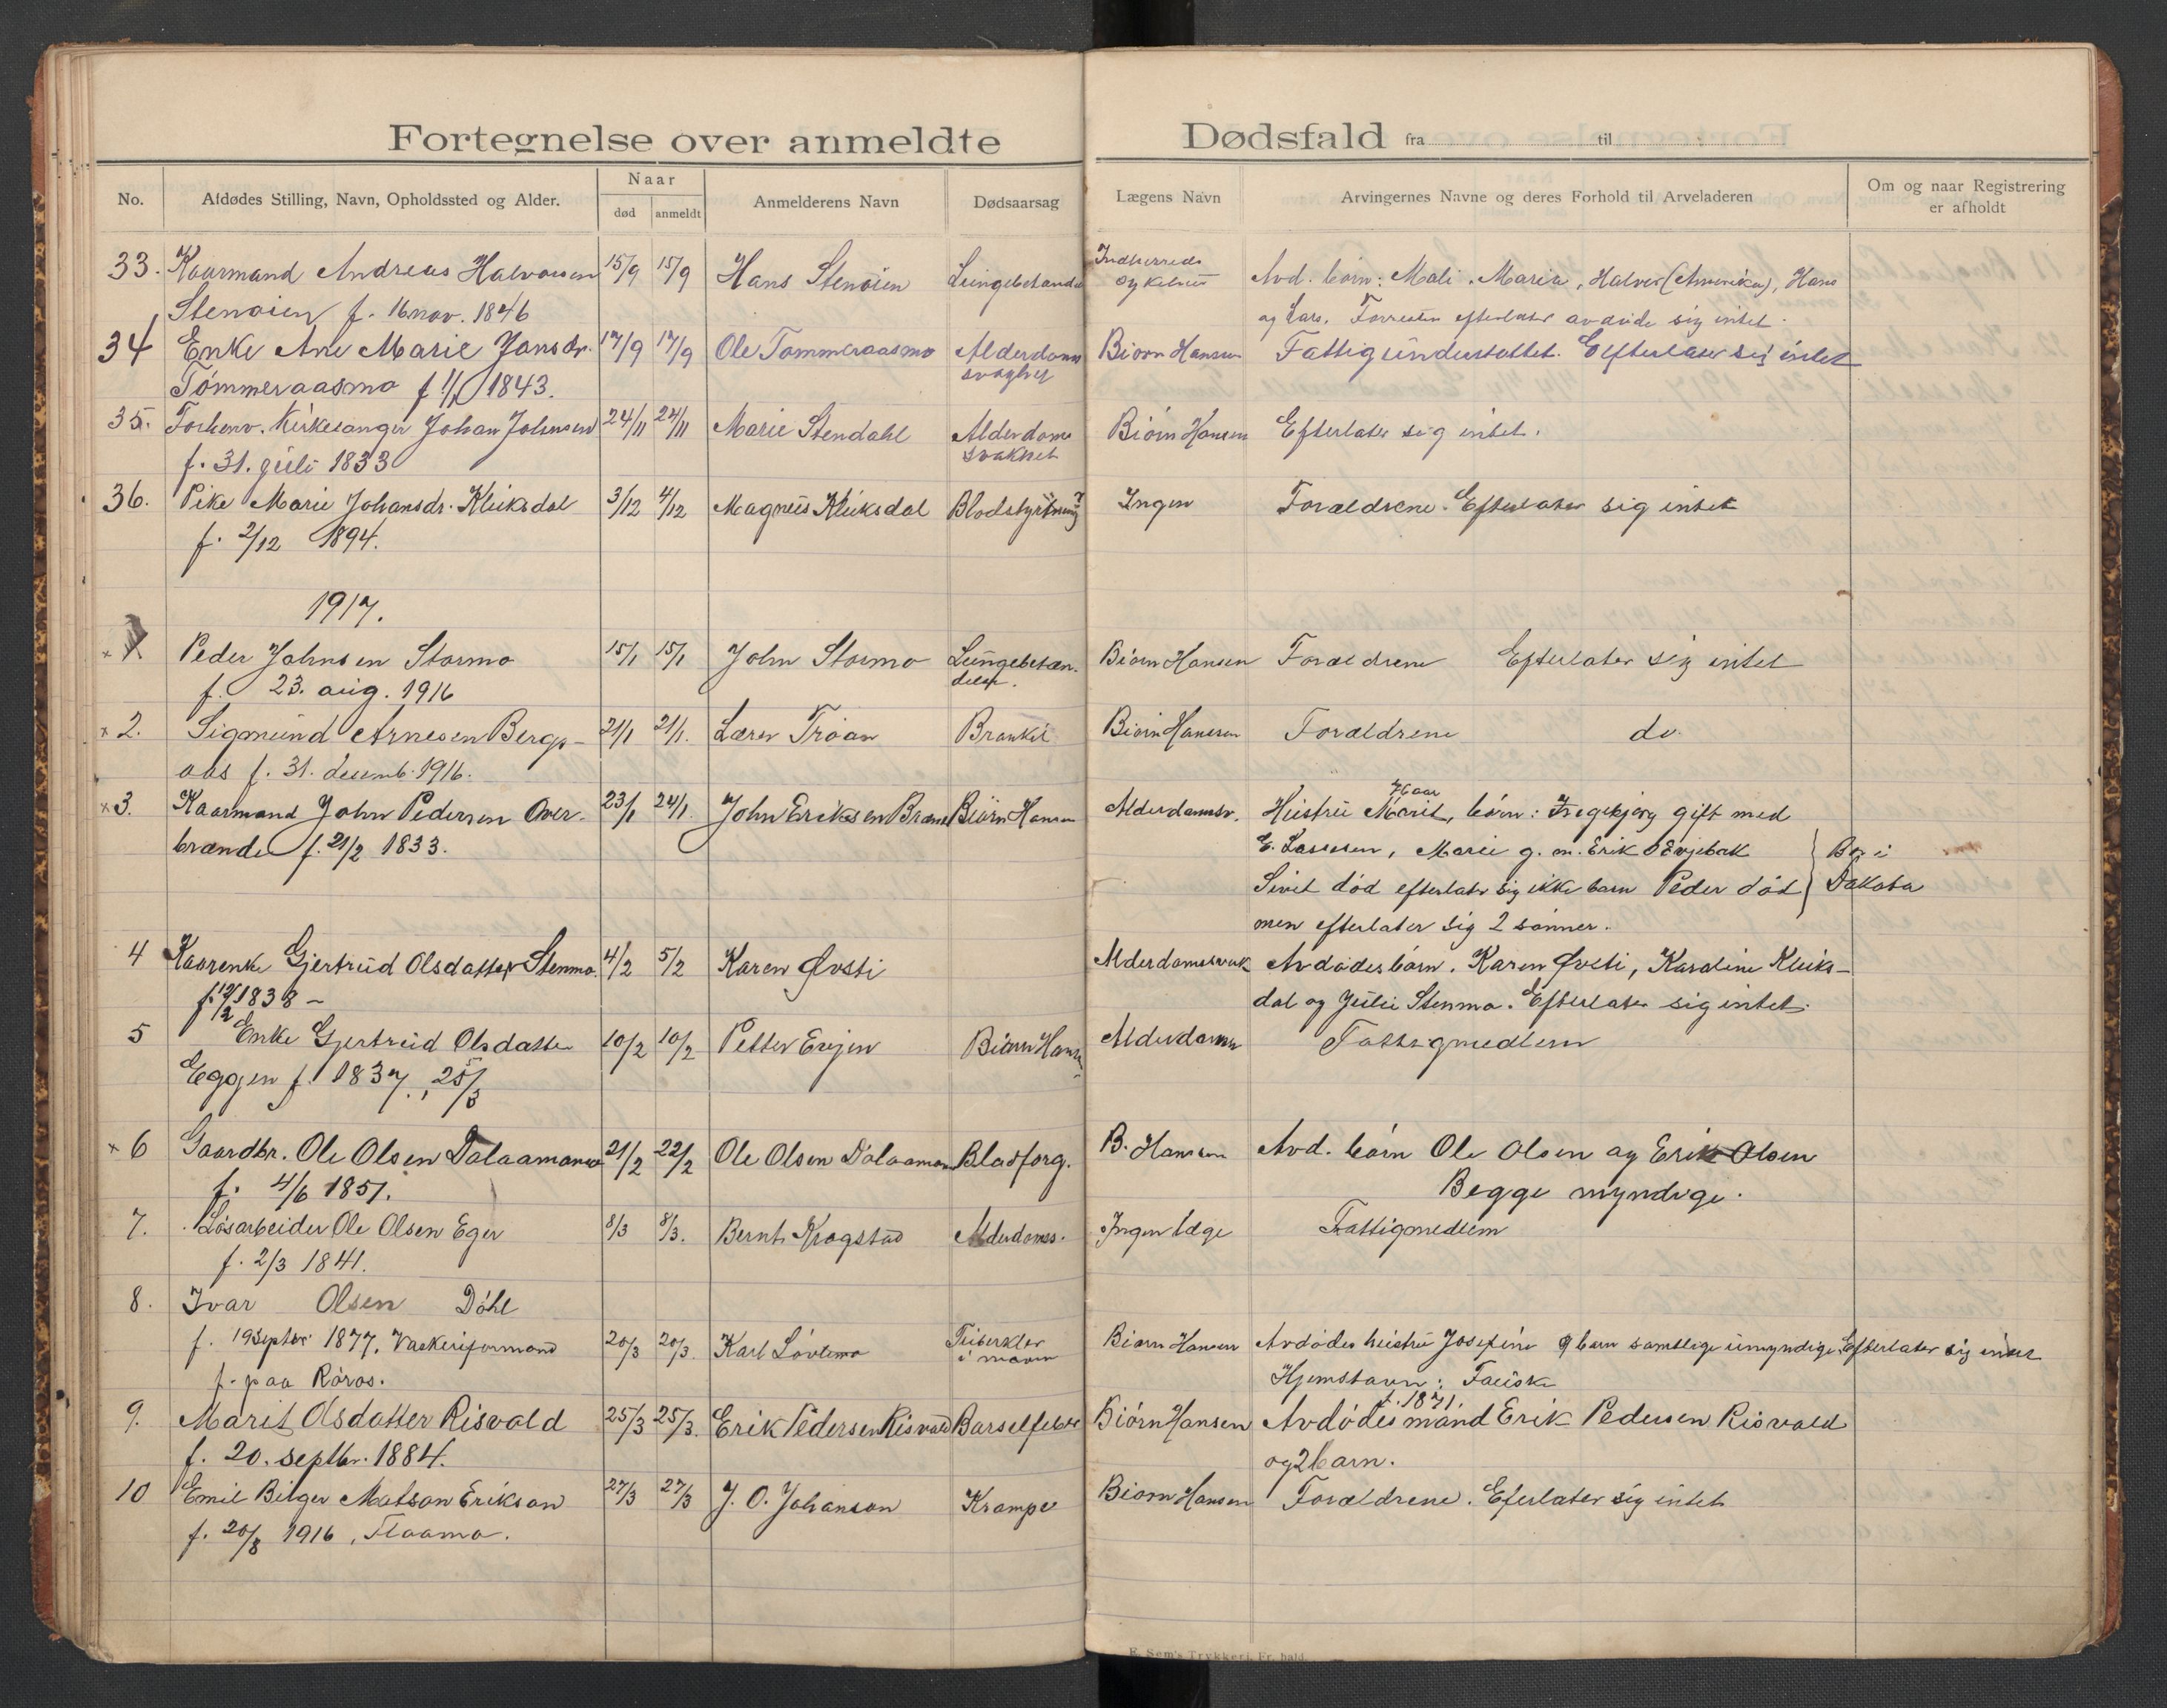 Fortegnelse over anmeldte Dødsfald fra til
No. Afdødes Stilling, Navn, Opholdssted og Alder. Naar død anmeldt Anmelderens Navn Dødsaarsag Lægens Navn Arvingernes Navne og deres Forhold til Arveladeren Om og naar Registrering er afholdt
33. Kaarmand Andreas Halvorsen 15/9 15/9 Hans Stenöien Lungebetænd Indherreds
sykehus Avd. börn: Mali. Maria, Halver (Amerika), Hans
Stenöien f. 16 nov. 1846 og Lars. Forresten efterlater avdöde sig intet.
34 Enke Ane Marie Jonsdr. 17/9 17/9 Ole Tømmeraasmo Alderdoms Biörn Hansen Fattigunderstöttet. Efterlater sig intet
Tømmeraasmo f 1843. svaghet
35. Forhenv. Kirkesanger Johan Johnsen 24/11 24/11 Marie Stendahl Alderdoms Biörn Hansen Efterlater sig intet.
f. 31. juli 1833 svakhet
36. Pike Marie Johansdr. Kluksdal 3/12 4/12 Magnus Kluksdal Blodstyrtning? Ingen Forældrene. Efterlater sig intet
f. 2/12 1894.
1917.
x 1 Peder Johnsen Stormo 15/1 15/1 John Stormo Lungebetæn- Biörn Hansen Forældrene Efterlater sig intet
f. 23. aug. 1916 delse.
x 2. Sigmund Arnesen Bergs- 21/1 21/1. Lærer Tröan Bronkit Biörn Hansen Forældrene do.
aas f. 31. decemb. 1916.
x 3. Kaarmand John Pedersen Over- 23/1 24/1. John Eriksen Brænde Biörn Hansen Alderdomssv. Hustru Marit, 76 aar börn: Ingebjørg gift med
brænde f. 21/2 1833. E. Lassesen, Marie g. m. Erik O Evjebak } Bor i
Sivet död efterlater sig ikke barn Peder död } Dakota
men efterlater sig 2 sönner.
4 Kaarenke Gjertrud Olsdatter Stenmo. 4/2 5/2 Karen Øvsti Alderdomssvak Avdödes börn. Karen Øvsti, Karoline Kluks-
f. 12/12 1838 – dal og Julie Stenmo. Efterlater sig intet.
5 Enke Gjertrud Olsdatter 10/2 10/2 Petter Evjen Biörn Hansen Alderdomssv Fattigmedlem
Eggen f. 1837., 25/3
x 6 Gaardbr. Ole Olsen Dalaamoen 21/2 22/2 Ole Olsen Dalaamoen Blodforg. B. Hansen Avd. börn Ole Olsen og Erik Olsen
f. 4/6 1851. Begge myndige.
7. Lösarbeider Ole Olsen Eger 8/3 8/3. Bernt Krogstad Alderdomss. Ingen læge Fattigmedlem
f. 2/3 1841.
8. Ivar Olsen Döhl
f. 19 septbr 1877. Vaskeriformand 20/3 20/3. Karl Lövtmo Tuberkler
i maven Biörn Hansen Avdödes hustru Josefine 9 barn samtlige umyndige. Efterlater sig intet
f. paa Röros. Hjemstavn: Fauske
9. Marit Olsdatter Risvold 25/3 25/3. Erik Pedersen Risvold Barselfeber Biörn Hansen Avdödes mand f. 1871. Erik Pedersen Risvold
f. 20. septbr. 1884. og 2 barn.
10 Emil Birger Matson Erikson 27/3 27/3 J. O. Johanson Krampe Biörn Hansen Forældrene. Efterlater sig intet
f. 20/8 1916, Flaamo.
E. Sem's Trykkeri, Fr.hald.